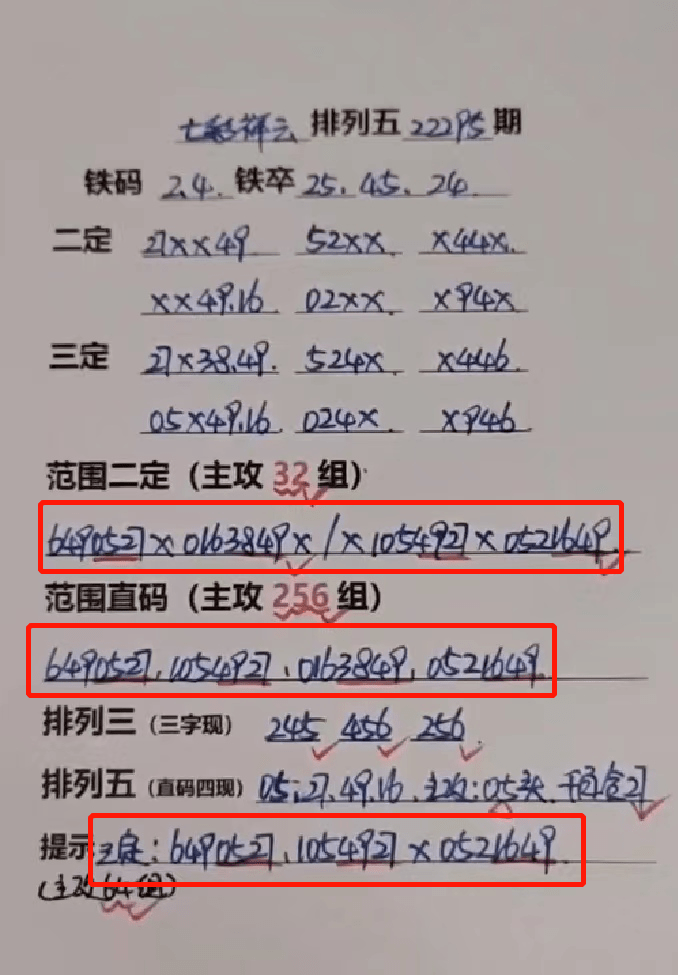 七彩祥云 排列五 22295 期
铁码 2.4. 铁卒 25. 45. 24
二定 27××49 52×× ×44×
××49.16 02×× ×94×
三定 27×38.49. 524× ×446
05×49.16 024× ×946
范围二定（主攻 32 组）
6490527×0163849×/×1054927×0521649.
范围直码（主攻 256 组）
6490527.1054927.0163849.0521649
排列三（三字现） 245 456 256
排列五（直码四现） 05.27.49.16.主攻:05头.千百含27
提示 三定:6490527.1054927×0521649
(主攻64组)